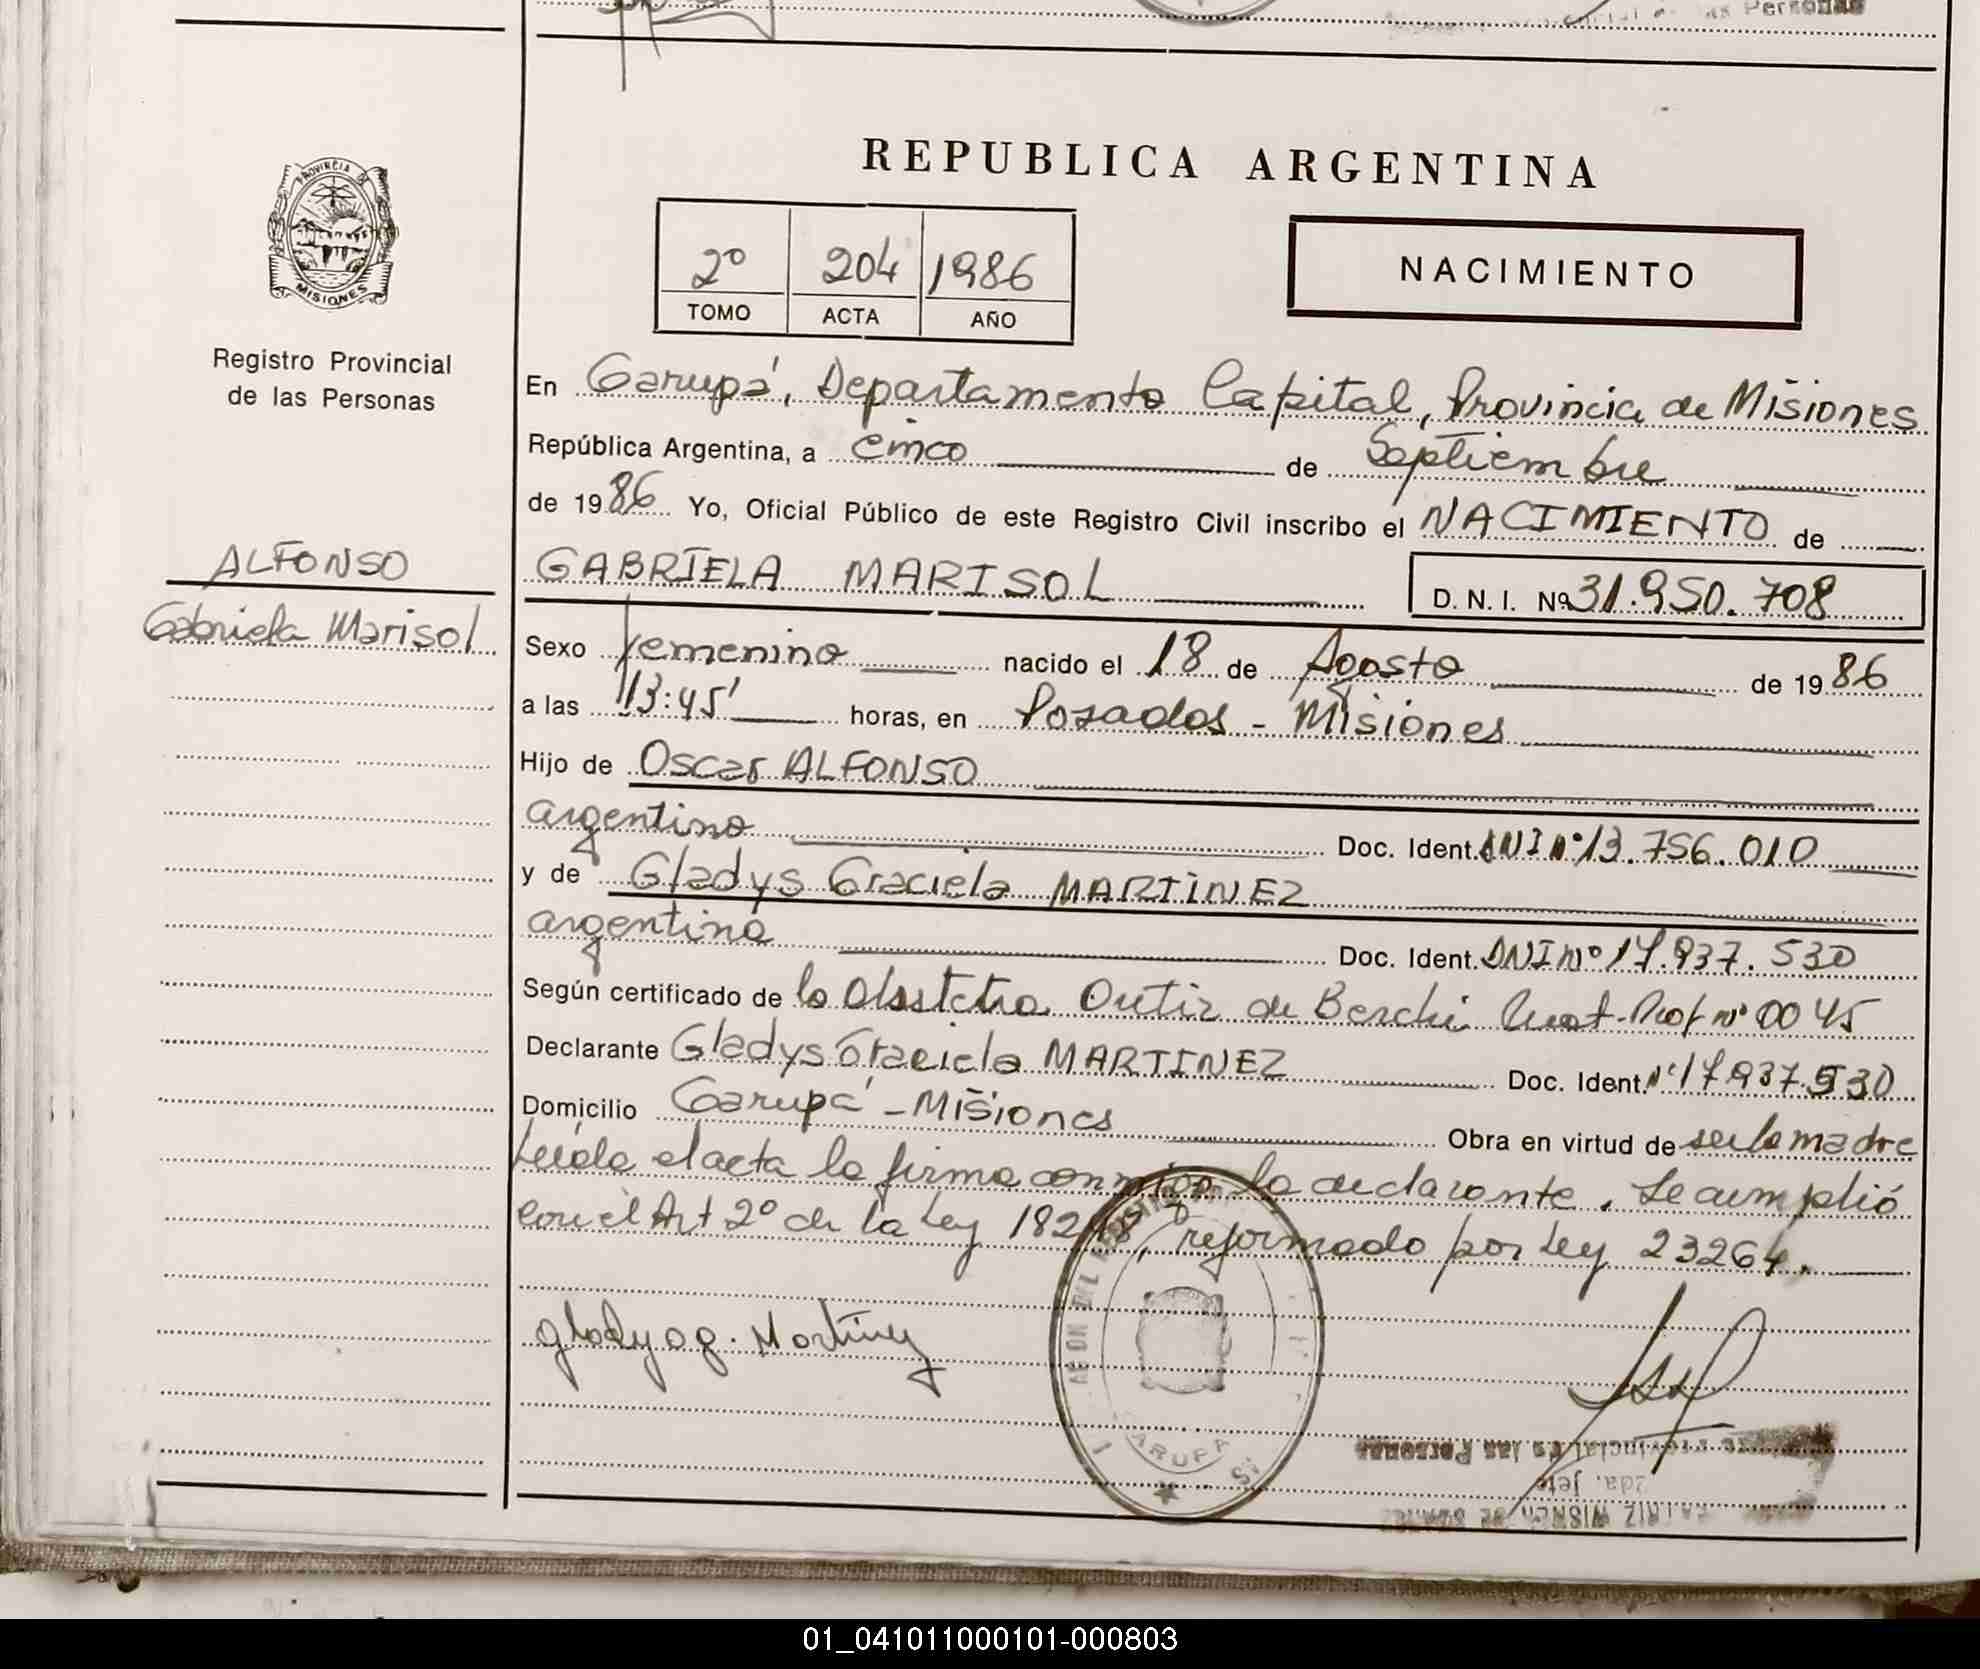 las Personas
REPUBLICA ARGENTINA
PROVINCIA DE
MISIONES
2º 204 1986
TOMO ACTA AÑO
NACIMIENTO
Registro Provincial
de las Personas
En Garupá, Departamento Capital, Provincia de Misiones
República Argentina, a cinco de Septiembre
de 1986 Yo, Oficial Público de este Registro Civil inscribo el NACIMIENTO de
ALFONSO
Gabriela Marisol
GABRIELA MARISOL
D. N. I. Nº 31.950.708
Sexo femenino nacido el 18 de Agosto de 1986
a las 13:45' horas, en Posadas - Misiones
Hijo de Oscar ALFONSO
argentino Doc. Ident. DNI nº 13.756.010
y de Gladys Graciela MARTINEZ
argentina Doc. Ident. DNI nº 17.937.530
Según certificado de la Obstetra Ortiz de Berchi Mat. Prof nº 0045
Declarante Gladys Graciela MARTINEZ Doc. Ident. nº 17.937.530
Domicilio Garupá - Misiones Obra en virtud de ser la madre
Leída el acta la firma conmigo la declarante. Se cumplió
con el Art 2º de la Ley 18248, reformado por Ley 23264.
Gladys g. Martinez
GARUPA
Provincial de las Personas
2da. Jefe
01_041011000101-000803